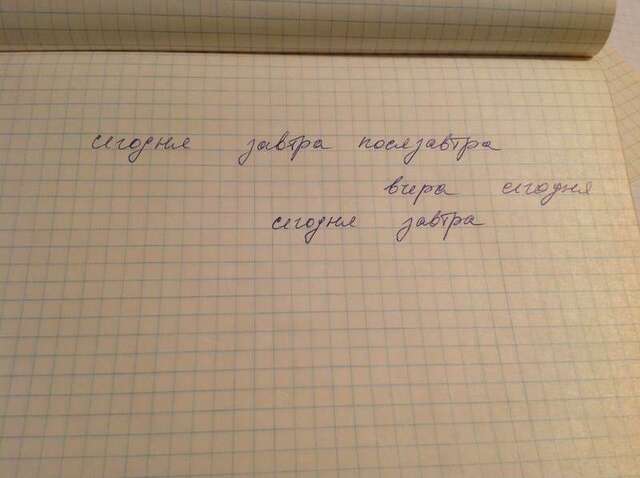 сегодня завтра послезавтра
вчера сегодня
сегодня завтра